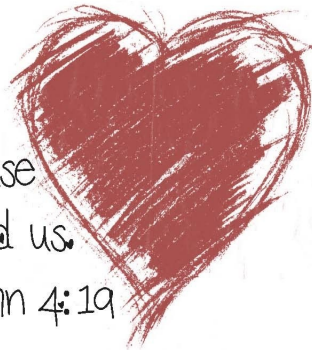 se
d us.
n 4:19